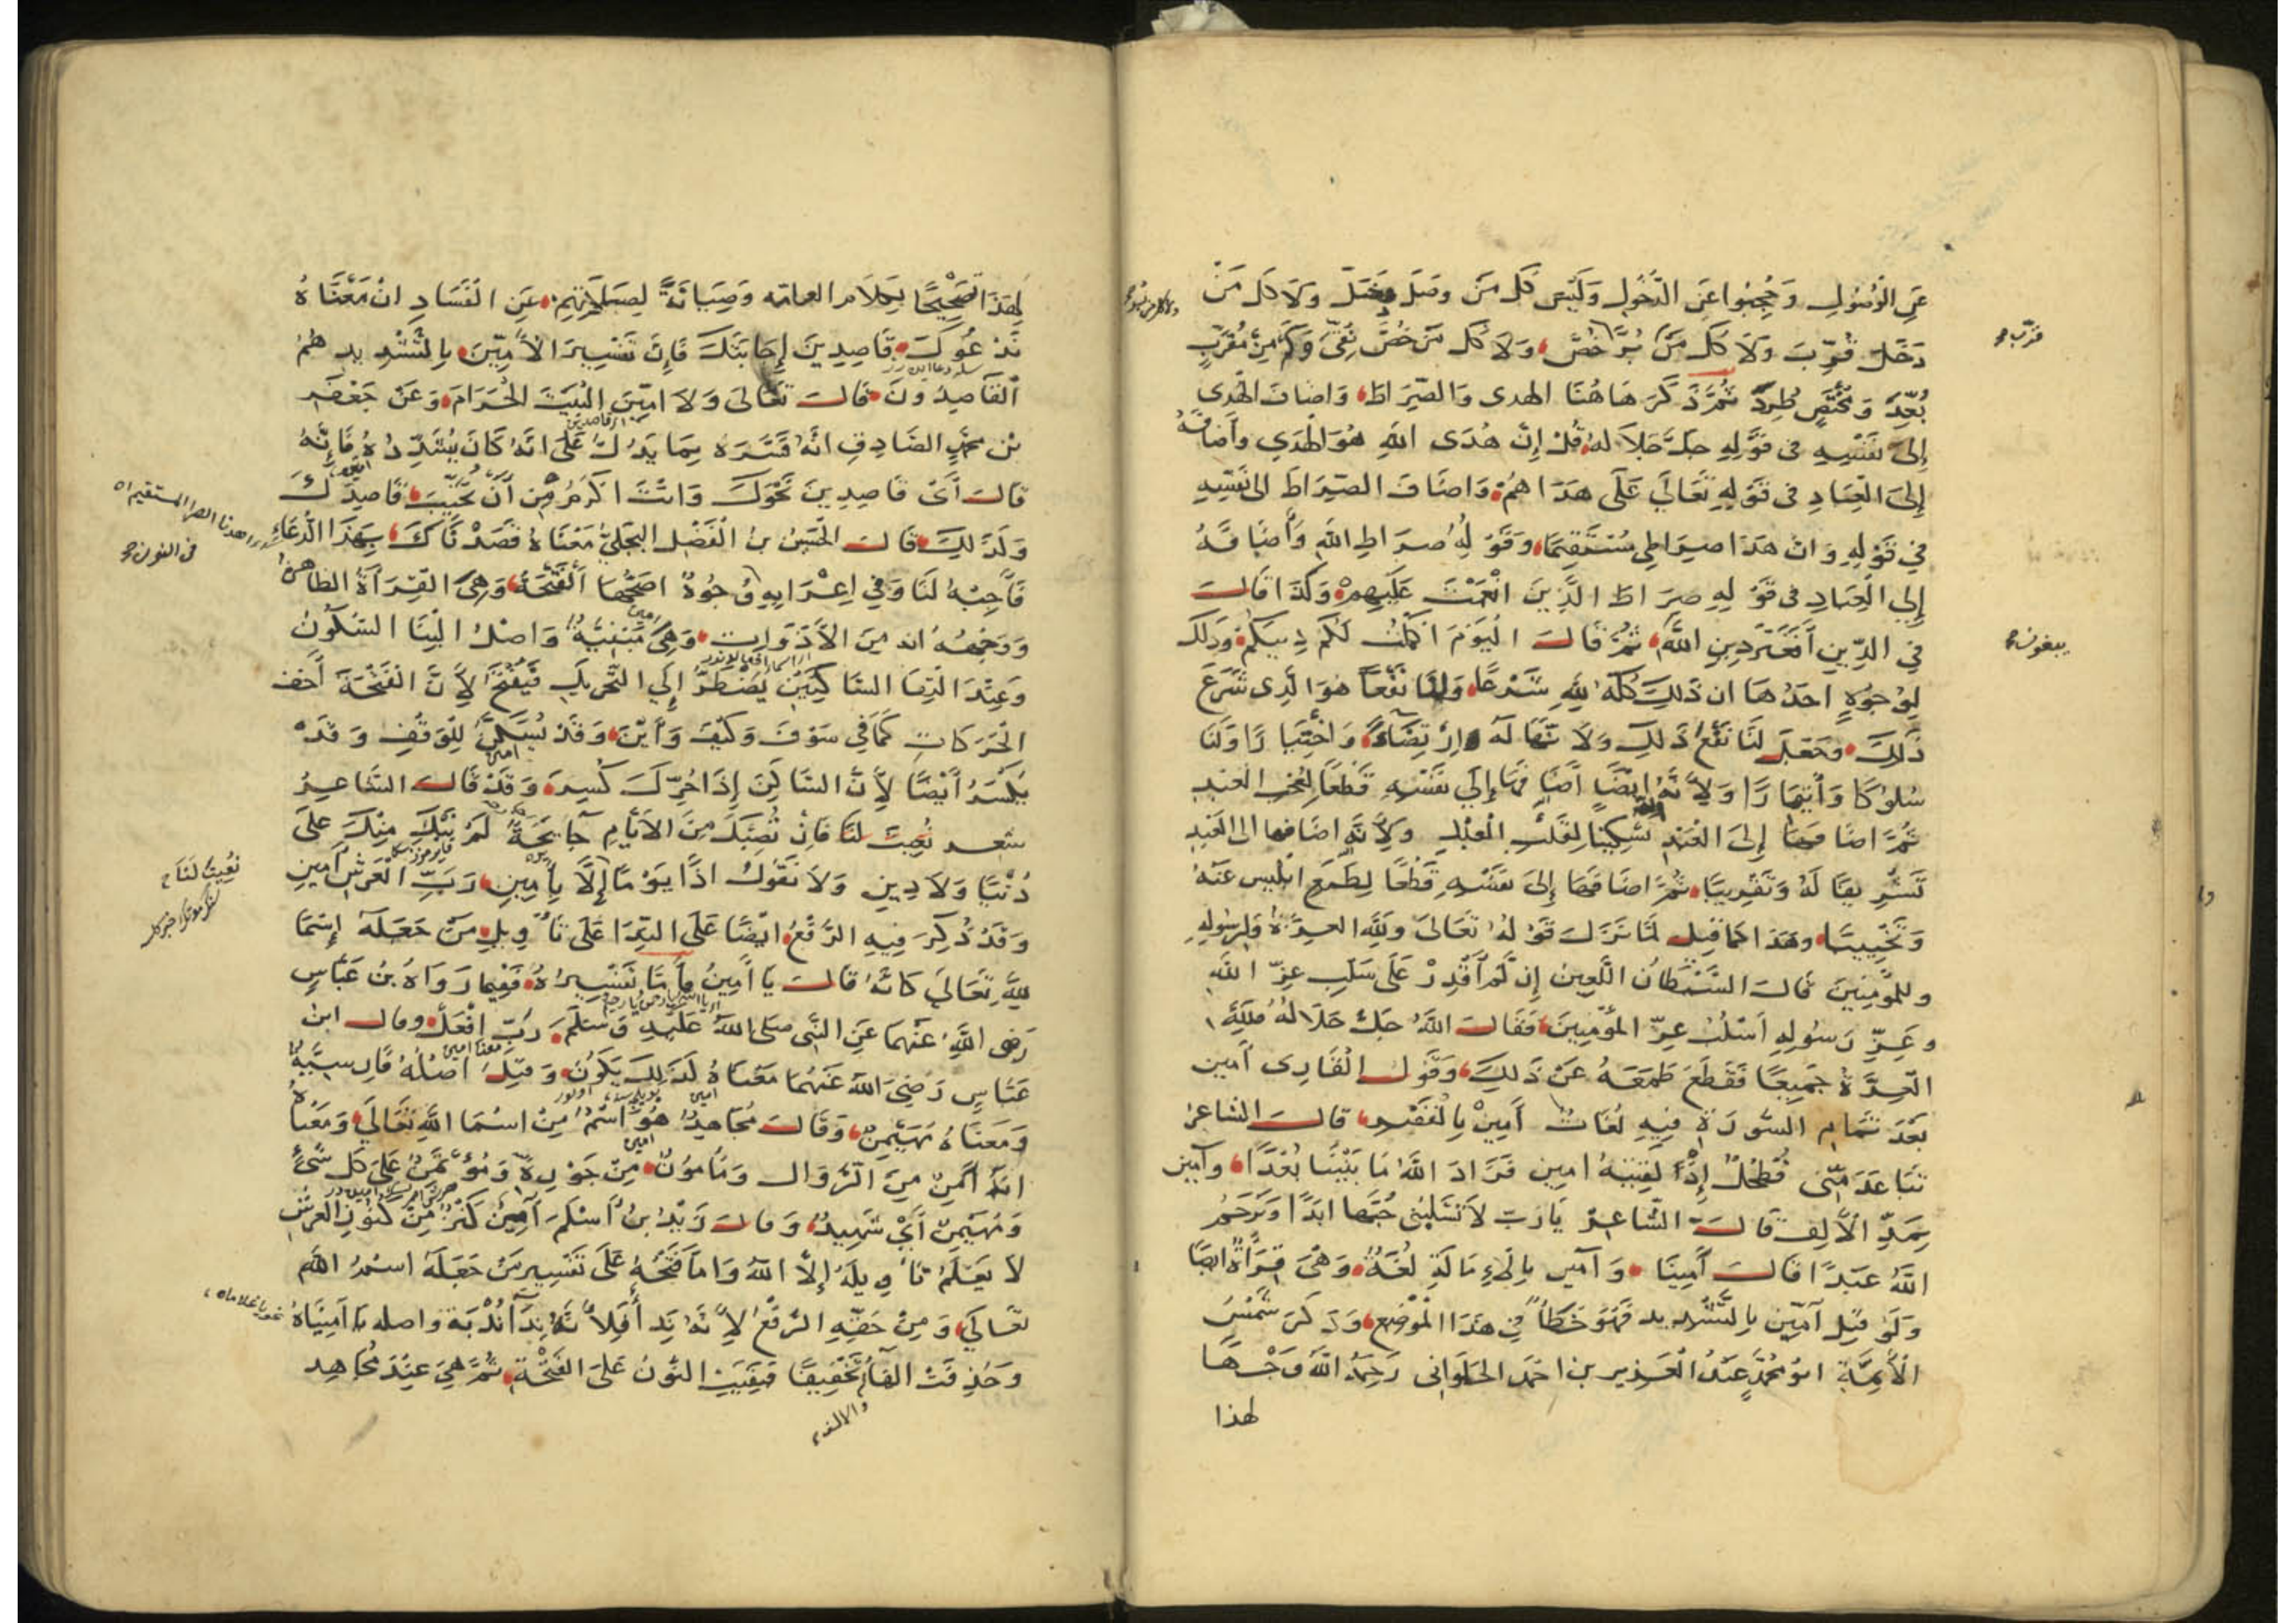 عَنِ الْوُصُولِ وَحُجِبُوا عَنِ الدُّخُولِ وَلَيْسَ كُلُّ مَنْ وَصَلَ دَخَلَ وَلَا كُلُّ مَنْ
دَخَلَ قُرِّبَ وَلَا كُلُّ مَنْ بُرَّ خُصَّ وَلَا كُلُّ مَنْ خُصَّ بَقِيَ وَكَمْ مِنْ مُقَرَّبٍ
قرّب
بُعِّدَ وَمُخْتَصٍّ طُرِدَ ثُمَّ ذَكَرَ هَاهُنَا الهدى وَالصِّرَاطَ وَاضَافَ الْهُدى
إِلَى نَفْسِهِ فى قَوْلِهِ جَلَّ جَلَالُهُ قُلْ إِنَّ هُدَى اللَّهِ هُوَ الْهُدَى وأَضَافَهُ
إِلَى الْعِبَادِ فى قَوْلِهِ تَعَالَى عَلَى هُدَاهُمْ وَاضَافَ الصِّرَاطَ الى نَفْسِهِ
فِي قَوْلِهِ وَانَّ هَذَا صِرَاطِى مُسْتَقِيمًا وَقَوْلِهِ صِرَاطِ اللَّهِ وَأَضَافَهُ
إِلَى الْعِبَادِ فى قَوْلِهِ صِرَاطَ الَّذِينَ انْعَمْتَ عَلَيْهِمْ وَكَذَا قَالَ
فِي الدِّينِ أَفَغَيْرَ دِينِ اللَّهِ ثُمَّ قَالَ الْيَوْمَ اكْمَلْتُ لَكُمْ دِينَكُمْ وَذَلِكَ
يبغون
لِوُجُوهٍ احَدُهَا ان ذَلِكَ كُلَّهُ لِلَّهِ شَرْعًا وَلَنَا نَفْعًا هُوَ الَّذِى شَرَعَ
ذَلِكَ وَجَعَلَ لَنَا نَفْعَ ذَلِكَ وَلِأَنَّهَا لَهُ ارْتِضَاءً وَاخْتِيَارًا وَلَنَا
سُلُوكًا وَأْتِمَارًا وَلِأَنَّهُ ايْضًا أَضَافَهَا إِلَى نَفْسِهِ قَطْعًا لِعُجْبِ الْعَبْدِ
ثُمَّ اضَافَهَا إِلَى الْعَبْدِ تَسْكِينًا لِقَلْبِ الْعَبْدِ وَلِأَنَّهُ اضَافَهَا الى الْعَبْدِ
تَشْرِيفًا لَهُ وَتَقْرِيبًا ثُمَّ اضَافَهَا إِلَى نَفْسِهِ قَطْعًا لِطَمَعِ ابْلِيسَ عَنْهُ
وَتَخْيِيبًا وهَذَا كَمَا قِيلَ لَمَّا نَزَلَ قَوْلُهُ تَعَالَى وَلِلَّهِ العِزَّةُ وَلِرَسُولِهِ
وللمؤْمِنِينَ قَالَ الشَّيْطَانُ اللَّعِينُ إِنْ لَمْ أَقْدِرْ عَلَى سَلْبِ عِزِّ اللَّهِ
وعِزِّ رَسُولِهِ اَسْلُبُ عِزَّ المُؤْمِنِينَ فَقَالَ اللَّهُ جَلَّ جَلَالُهُ فَلِلَّهِ
الْعِزَّةُ جَمِيعًا فَقَطَعَ طَمَعَهُ عَنْ ذَلِكَ وَقَوْلُ الْقَارِى آمين
بَعْدَ تَمَامِ السُّورَةِ فِيهِ لُغَاتٌ أَمِينْ بِالْقَصْرِ قَالَ الشَّاعِرُ
تَبَاعَدَ مِنِّى فُطْحُلٌ إِذْ لَقِيتُهُ امين فَزَادَ اللَّهُ مَا بَيْنَنَا بُعْدًا وآمين
بِمَدِّ الْأَلِفِ قَالَ الشَّاعِرُ يَارَبِّ لَا تَسْلُبَنِّى حُبَّهَا ابَدًا وَيَرْحَمُ
اللَّهُ عَبْدًا قَالَ آمِينَا وَآمين بِالْإِمَالَةِ لُغَةٌ وَهْىَ قِرَاءَةٌ ايضًا
وَلَوْ قِيلَ آمّين بِالتَّشْدِيدِ فَهُوَ خَطَأٌ فِي هَذَا الْمَوْضِعِ وَذَكَرَ شَمْسُ
الْأَئِمَّةِ ابُو مُحَمَّدٍ عَبْدُ الْعَزِيزِ بن احْمَدَ الحَلْوَانِى رَحِمَهُ اللَّهُ وَجْهًا
لهذا
لِهَذَا تَصْحِيحًا لِكَلَامِ العامّه وَصِيَانَةً لِصَلَاتِهِمْ عَنِ الْفَسَادِ انْ مَعْنَاهُ
نَدْعُوكَ قَاصِدِينَ إِجَابَتَكَ فَإِنَّ تَفْسِيرَ الْآمِّينَ بِالتَّشْدِيدِ هُمُ
الْقَاصِدُونَ قَالَ تَعَالَى وَلَا امِّينَ الْبَيْتَ الْحَرَامَ وَعَنْ جَعْفَرِ
بْنِ مُحَمَّدٍ الصَّادِقِ انَّهُ فَسَّرَهُ بِمَا يَدُلُّ عَلَى انَّهُ كَانَ يُشَدِّدُهُ فَإِنَّهُ
قَالَ أَىْ قَاصِدِينَ نَحْوَكَ وَانْتَ اكْرَمُ مِنْ أَنْ تُخَيِّبَ قَاصِدَكَ
وَلَذَلِكَ قَالَ الْحُسَيْنُ بْنُ الْفَضْلِ الْبَجَلِيُّ مَعْنَاهُ قَصَدْنَاكَ بِهَذَا الدُّعَاءِ
اهدنا الصراط المستقيم
فى النون
فَأَجِبْهُ لَنَا وَفِي اِعْرَابِهِ وُجُوهٌ اصَحُّهَا الْفَتْحَةُ وَهِىَ الْقِرَاءَةُ الظَّاهِرَةُ
وَوَجْهُهُ انه مِنَ الْأَدَوَاتِ وَهِىَ مَبْنِيَّةٌ وَاصْلُ الْبِنَا السُّكُونُ
وَعِنْدَ الْتِقَا السَّاكِنَيْنِ يُضْطَرُّ إِلَى التَّحْرِيكِ فَيُفْتَحُ لِأَنَّ الْفَتْحَةَ أَخَفُّ
الْحَرَكَاتِ كَمَا فِي سَوْفَ وَكَيْفَ وَأَيْنَ وَقَدْ يُسَكَّنُ لِلْوَقْفِ وَقَدْ
يُكْسَرُ أَيْضًا لِأَنَّ السَّاكِنَ إِذَا حُرِّكَ كُسِرَ وَقَدْ قَالَ الشَّاعِرُ
شعر نُعِيتُ لَنَا فَإِنْ تُصِبْكَ مِنَ الْأَيَّامِ جَائِحَةٌ لَمْ نَبْكِ مِنْكَ عَلَى
دُنْيَا وَلَا دِينِ وَلَا نَقُولُ اذًا يَوْمًا إِلَّا بِآمِينَ رَبِّ الْعَرْشِ آمِينِ
نُعِيتَ لَنَا
وَقَدْ ذُكِرَ فِيهِ الرَّفْعُ ايْضًا عَلَى النِّدَا عَلَى تَأْوِيلِ مَنْ جَعَلَهُ إِسْمًا
لِلَّهِ تَعَالَى كَانَّهُ قَالَ يَا آمِينُ وأَمَّا تَفْسِيرُهُ فَفِيمَا رَوَاهُ بْنُ عَبَّاسٍ
رَضِىَ اللَّهُ عَنْهُمَا عَنِ النَّبِى صَلى اللَّهُ عَلَيْهِ وَسَلَّمَ رَبِّ افْعَلْ وقال ابن
عَبَّاسٍ رَضِيَ اللَّهُ عَنْهُمَا مَعْنَاهُ لَذَلِكَ يَكُونُ وَقِيلَ اصْلُهُ فارسيَّةٌ
وَمَعْنَاهُ مُهَيْمِنٌ وَقَالَ مُجَاهِدٌ هُوَ اسْمٌ مِنْ اسْمَا اللَّهِ تَعَالَى وَمَعْنَاهُ
انَّهُ أَمِنٌ مِنَ الزَّوَالِ وَمَأْمُونٌ مِنْ جَوْرِهِ وَمُؤْتَمَنٌ عَلَى كُلِّ شَيْءٍ
وَمُهَيْمِنٌ أَيْ شَهِيدٌ وَقَالَ زَيْدُ بْنُ أَسْلَمَ آمِينَ كَنْزٌ مِنْ كُنُوزِ الْعَرْشِ
لَا يَعْلَمُ تَأْوِيلَهُ إِلَّا اللَّهُ وَامَّا فَتْحُهُ عَلَى تَفْسِيرِ مَنْ جَعَلَهُ اسْمَ اللَّهِ
تَعَالَى وَمِنْ حَقِّهِ الرَّفْعُ لِأَنَّهُ نِدَا فَلِأَنَّهُ نِدَاءُ نُدْبَةٍ واصله يا آمِينَاهُ
نحو يا غلاماه
وَحُذِفَتْ الْهَاءُ تَخْفِيفًا فَبَقِيَتِ النُّونُ عَلَى الْفَتْحَةِ ثُمَّ هِىَ عِنْدَ مُجَاهِدٍ
والالف